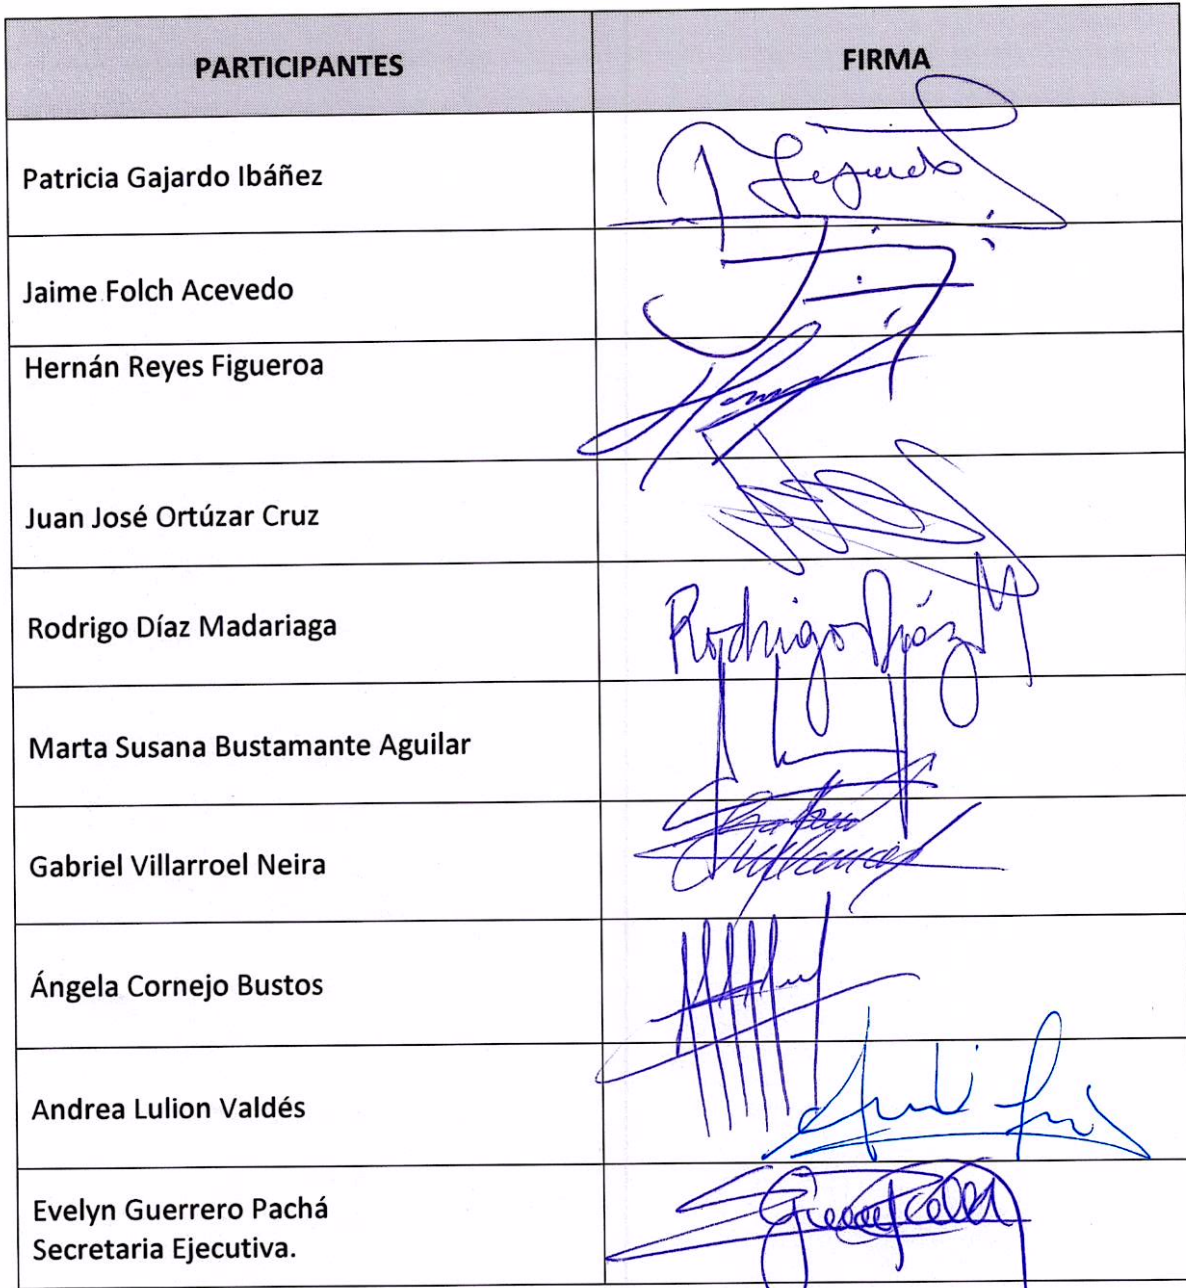 PARTICIPANTES FIRMA
Patricia Gajardo Ibáñez
Jaime Folch Acevedo
Hernán Reyes Figueroa
Juan José Ortúzar Cruz
Rodrigo Díaz Madariaga Rodrigo Díaz M
Marta Susana Bustamante Aguilar
Gabriel Villarroel Neira
Ángela Cornejo Bustos
Andrea Lulion Valdés
Evelyn Guerrero Pachá
Secretaria Ejecutiva.